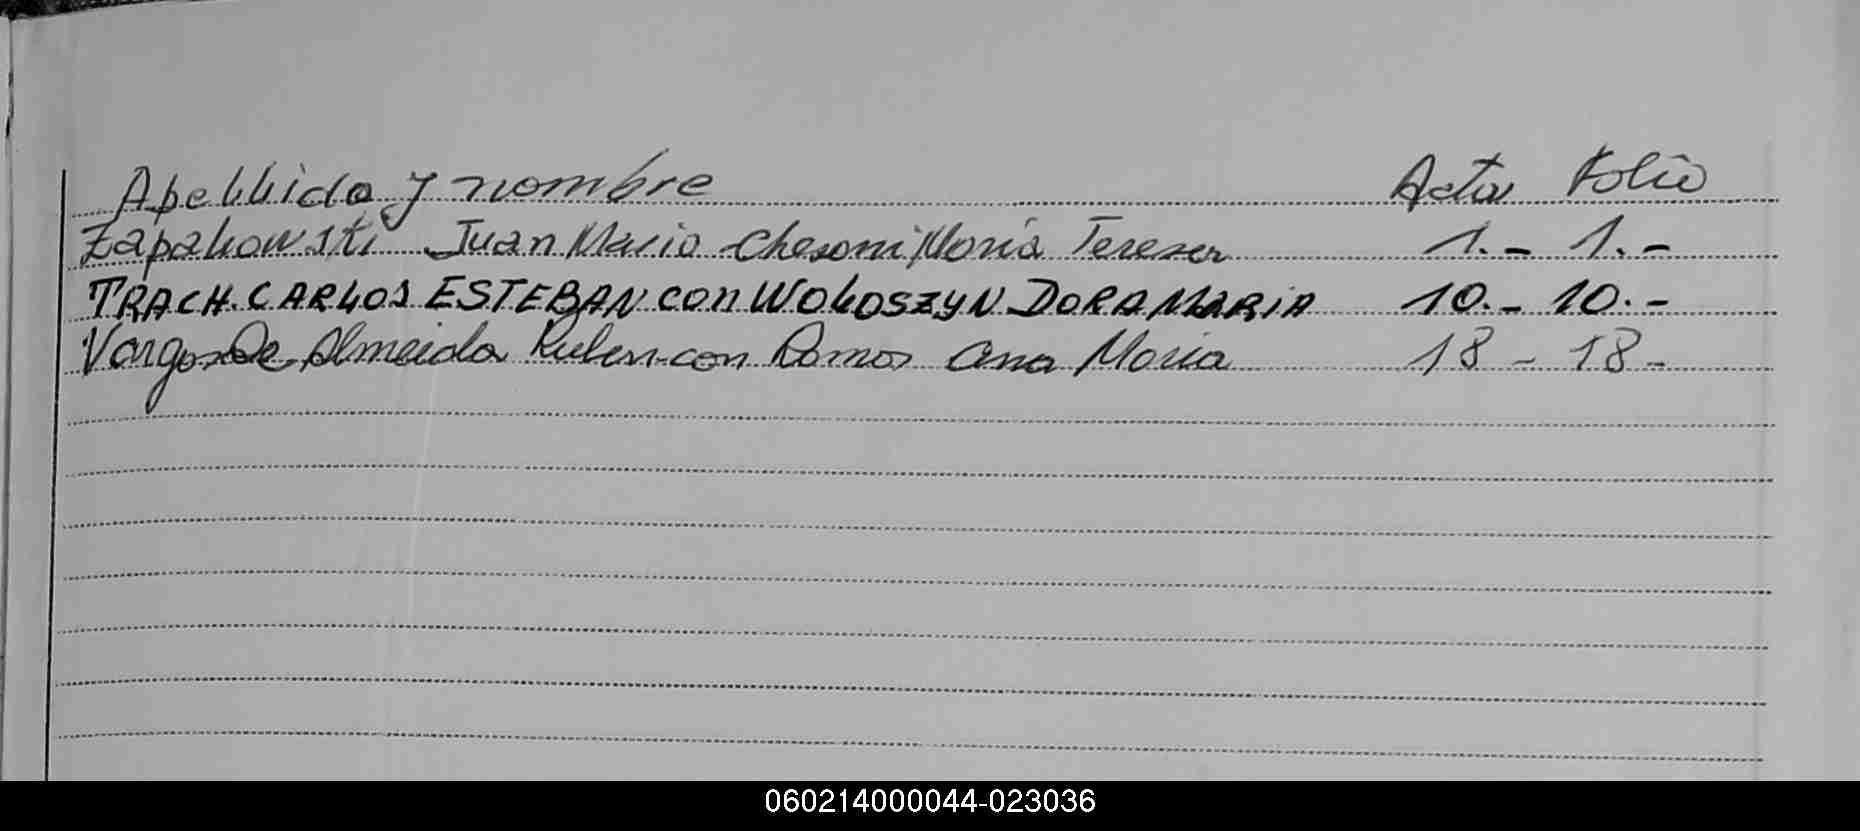 Apellido y nombre Acta Folio
Zapakowski Juan Mario - Chesoni Maria Teresa 1.- 1.-
TRACH. CARLOS ESTEBAN con WOLOSZYN DORA MARIA 10.- 10.-
Vargas De Almeida Ruben - con Ramos Ana Maria 18 - 18 -
060214000044-023036